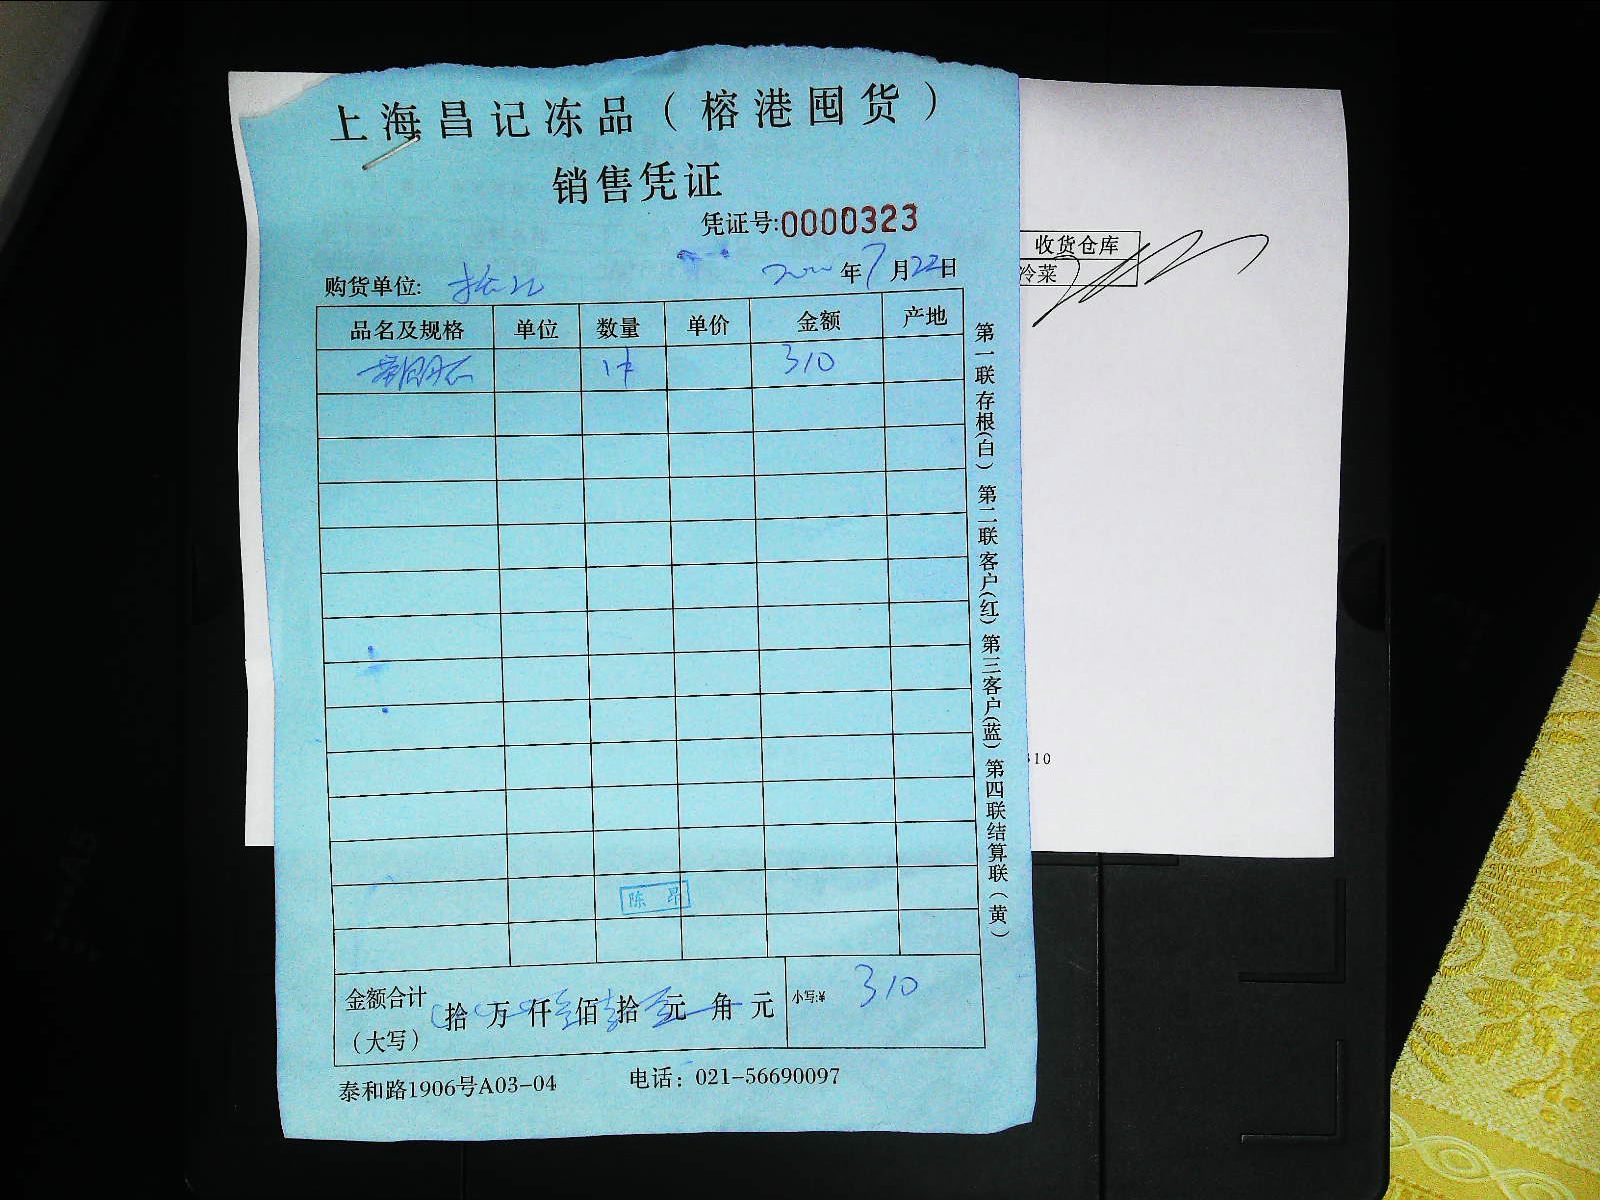 上海昌记冻品（榕港囤货）
销售凭证
凭证号:0000323
年7月22日
购货单位:
品名及规格 单位 数量 单价 金额 产地
1件 310
陈昂
金额合计（大写） 拾 万 仟 佰 拾 元 角 元 小写:¥ 310
泰和路1906号A03-04 电话：021-56690097
第一联存根(白) 第二联客户(红) 第三客户(蓝) 第四联结算联（黄）
收货仓库
冷菜
310